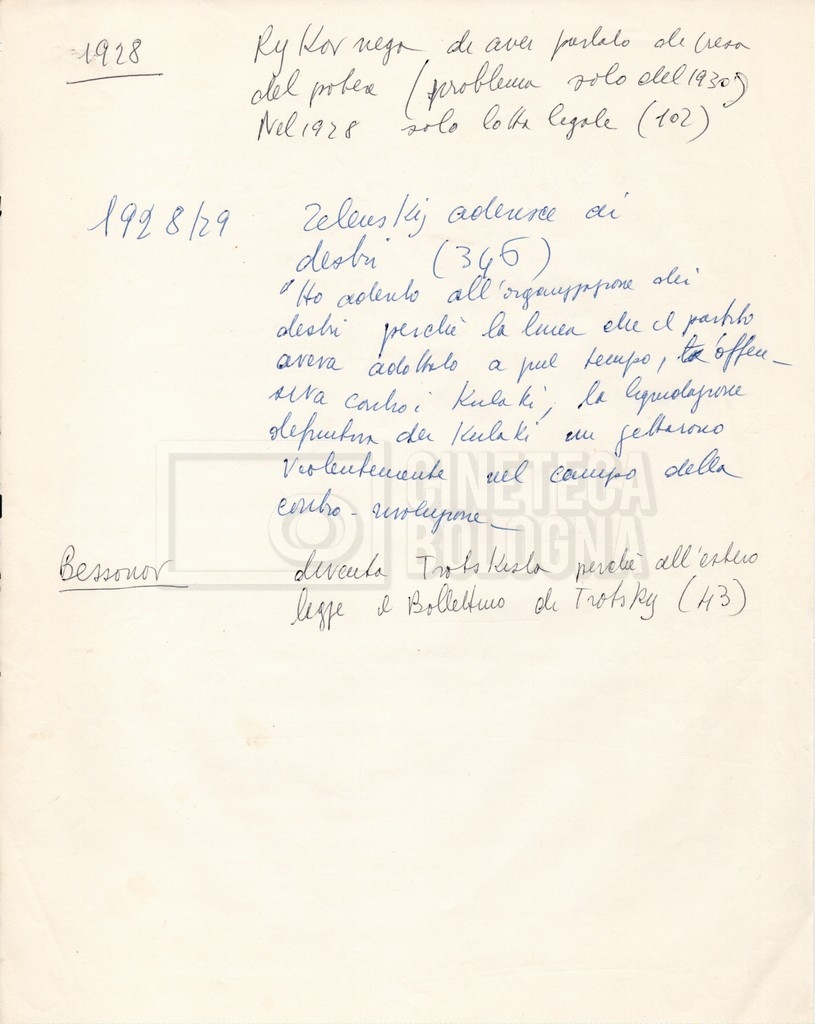 1928 Rykov nega di aver parlato di presa
del potere (problema solo del 1930)
Nel 1928 solo lotta legale (102)
1928/29 Zelenskij aderisce ai
destri (346)
"Ho aderito all'organizzazione dei
destri perchè la linea che il partito
aveva adottato a quel tempo, l'offen-
siva contro i Kulaki, la liquidazione
definitiva dei Kulaki mi gettarono
violentemente nel campo della
contro-rivoluzione_
CINETECA
BOLOGNA
Bessonov diventa Trotskista perchè all'estero
legge il Bollettino di Trotsky (43)